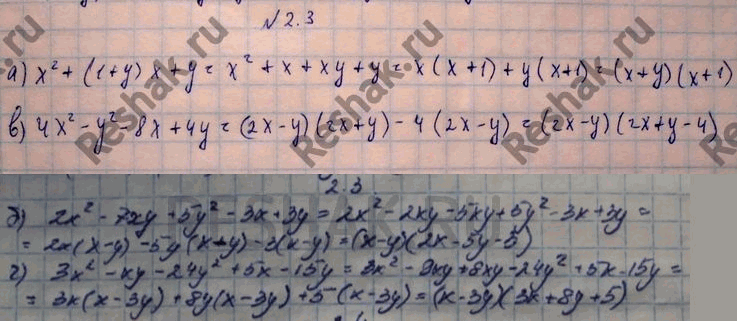 №2.3
а) x² + (1+y) x + y = x² + x + xy + y = x (x+1) + y (x+1) = (x+y) (x+1)
в) 4x² - y² - 8x + 4y = (2x-y) (2x+y) - 4 (2x-y) = (2x-y) (2x+y-4)
2.3
б) 2x² - 7xy + 5y² - 3x + 3y = 2x² - 2xy - 5xy + 5y² - 3x + 3y =
= 2x(x-y) - 5y(x-y) - 3(x-y) = (x-y)(2x-5y-3)
г) 3x² - xy - 24y² + 5x - 15y = 3x² - 9xy + 8xy - 24y² + 5x - 15y =
= 3x(x-3y) + 8y(x-3y) + 5(x-3y) = (x-3y)(3x+8y+5)